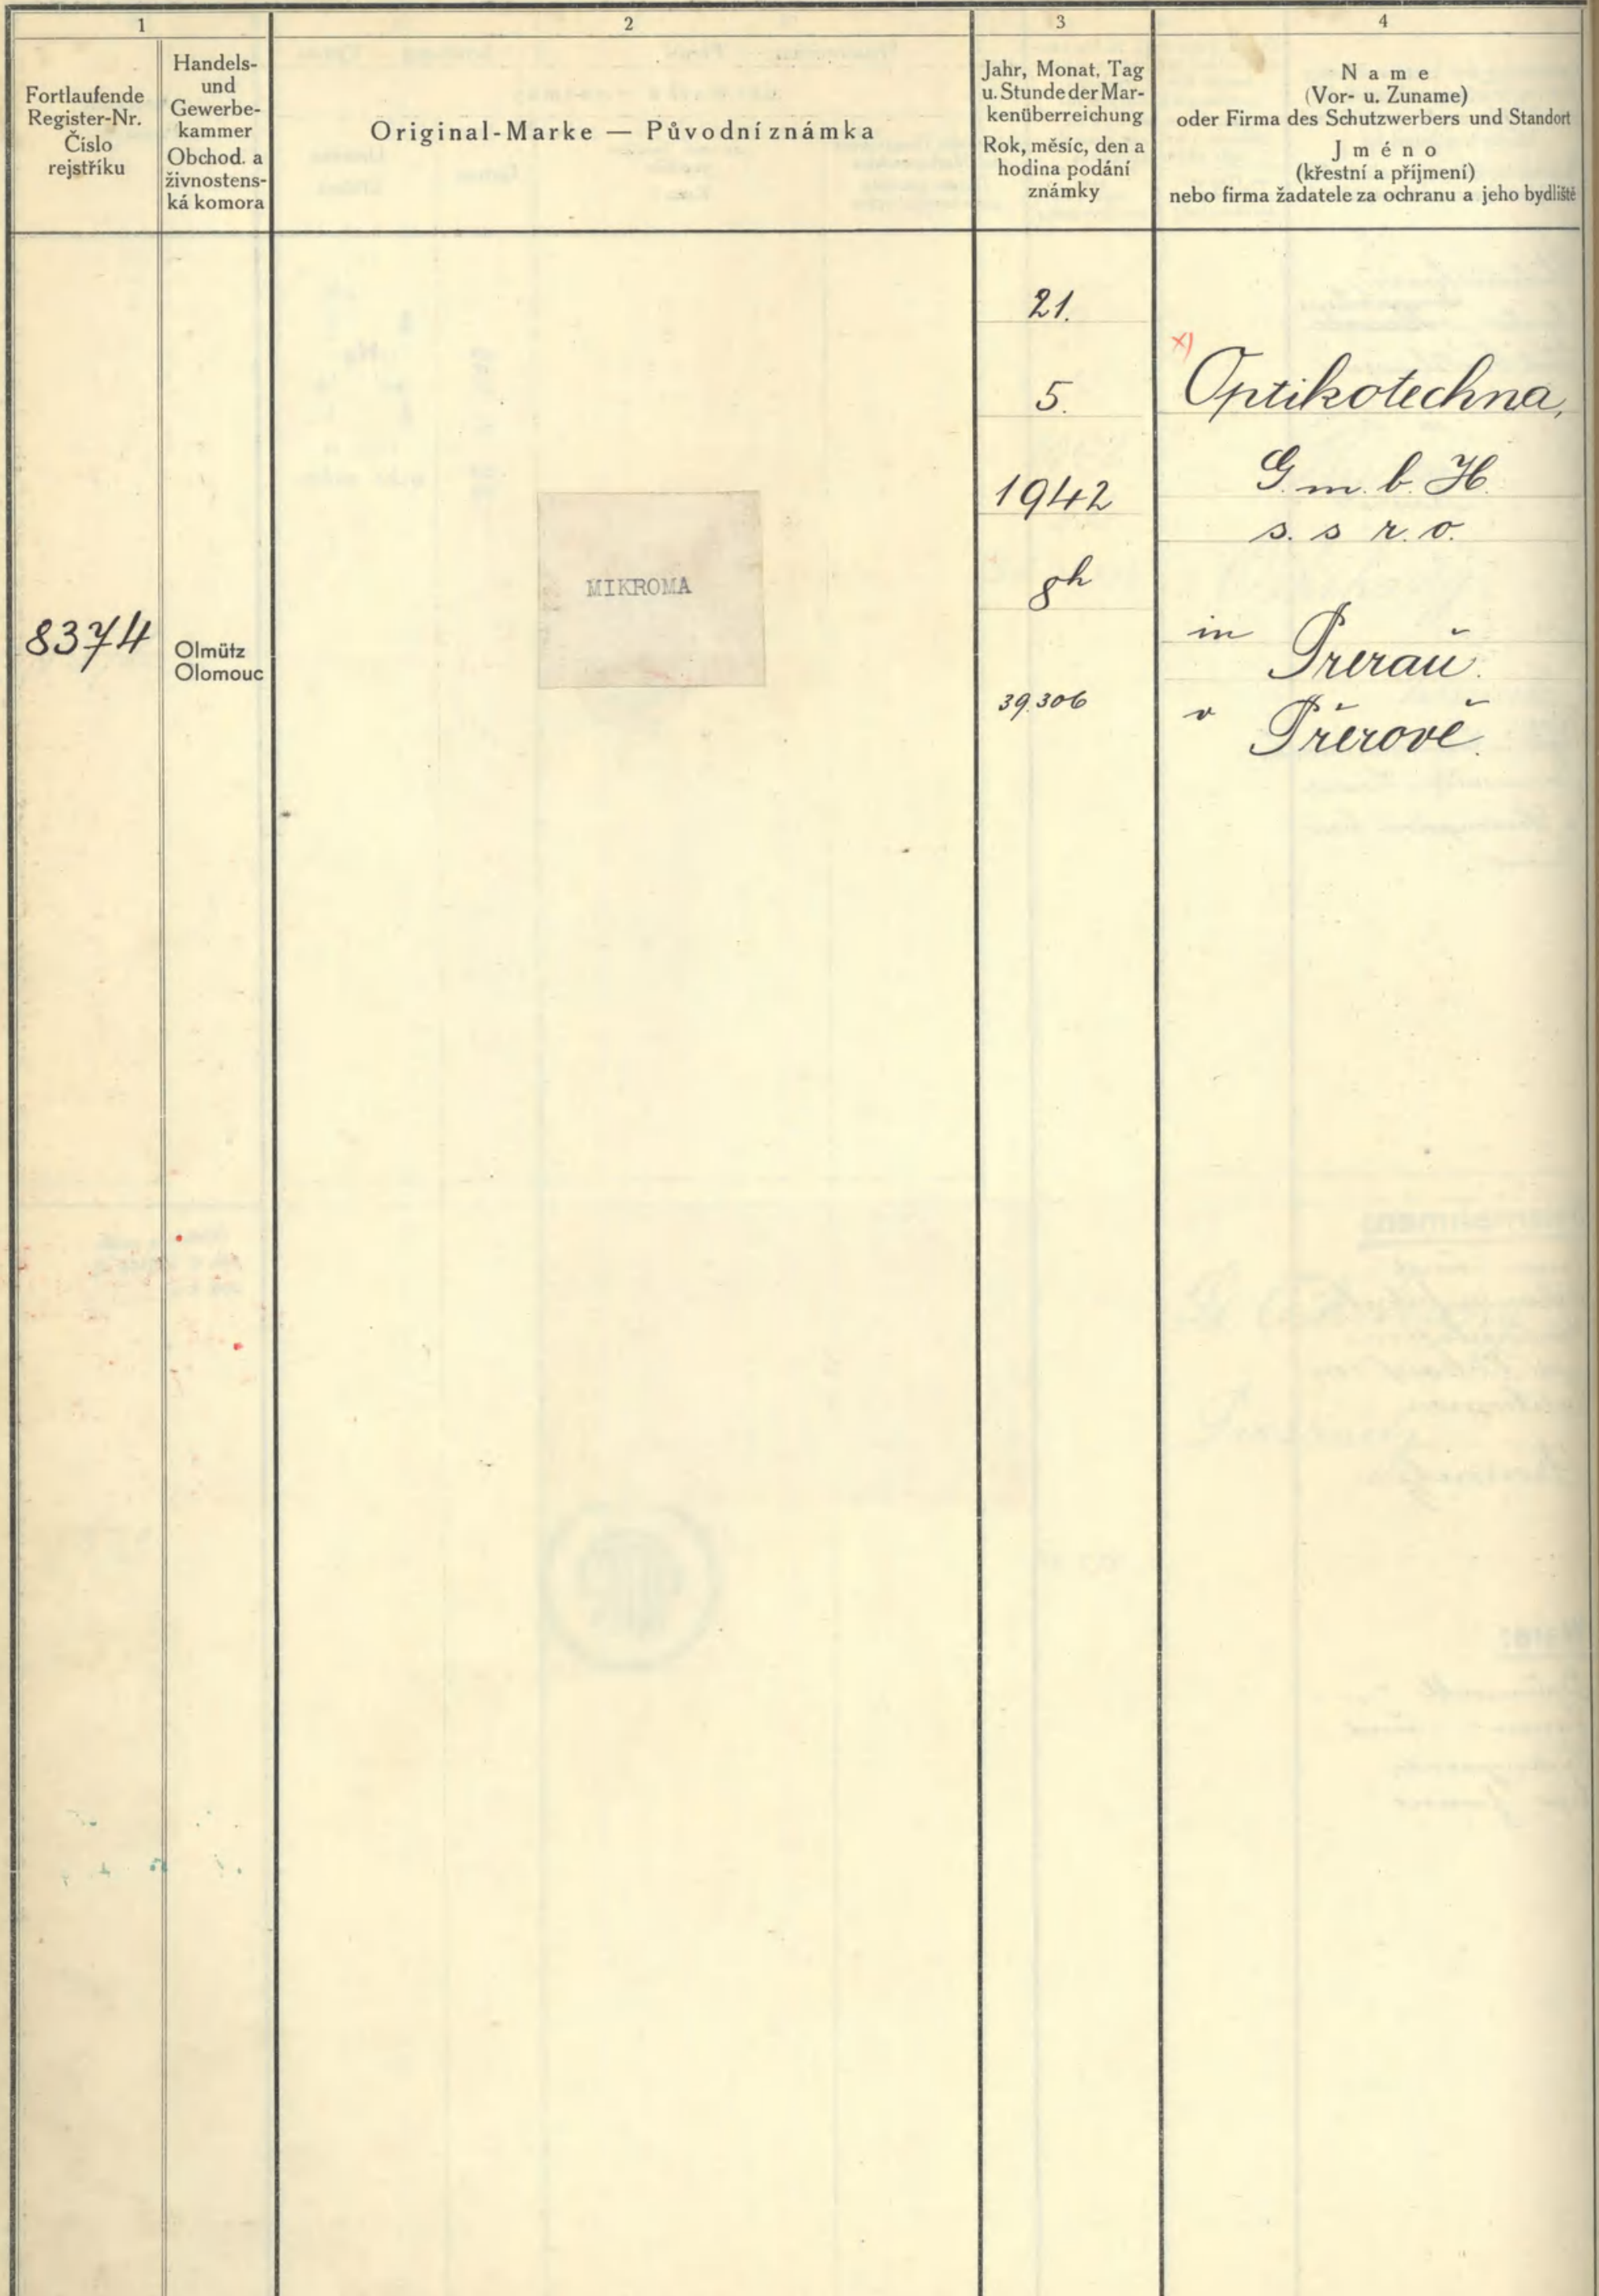 1
2
3
4
Fortlaufende
Register-Nr.
Číslo
rejstříku
Handels-
und
Gewerbe-
kammer
Obchod. a
živnostens-
ká komora
Original-Marke — Původní známka
Jahr, Monat, Tag
u. Stunde der Mar-
kenüberreichung
Rok, měsíc, den a
hodina podání
známky
Name
(Vor- u. Zuname)
oder Firma des Schutzwerbers und Standort
Jméno
(křestní a příjmení)
nebo firma žadatele za ochranu a jeho bydliště
8374
Olmütz
Olomouc
MIKROMA
21.
5.
1942
8h
39.306
x)
Optikotechna,
G. m. b. H.
s. s r. o.
in Prerau.
v Přerově.